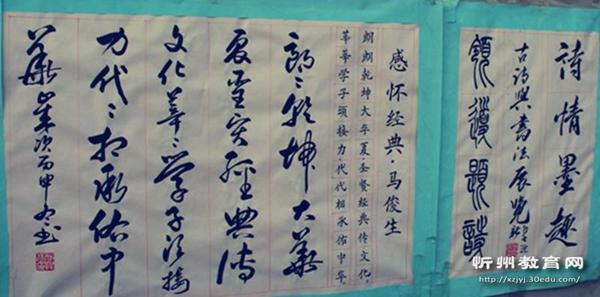 诗情墨趣
古诗與書法展览
領導題詩
感怀经典·马俊生
朗朗乾坤大华夏,圣贤经典传文化,
莘莘学子须接力,代代相承佑中华。
朗々乾坤大華
夏聖贤经典傳
文化莘々学子须接
力代々相承佑中
華 歲次丙申冬书
忻州教育网
http://xzjyj.30edu.com/